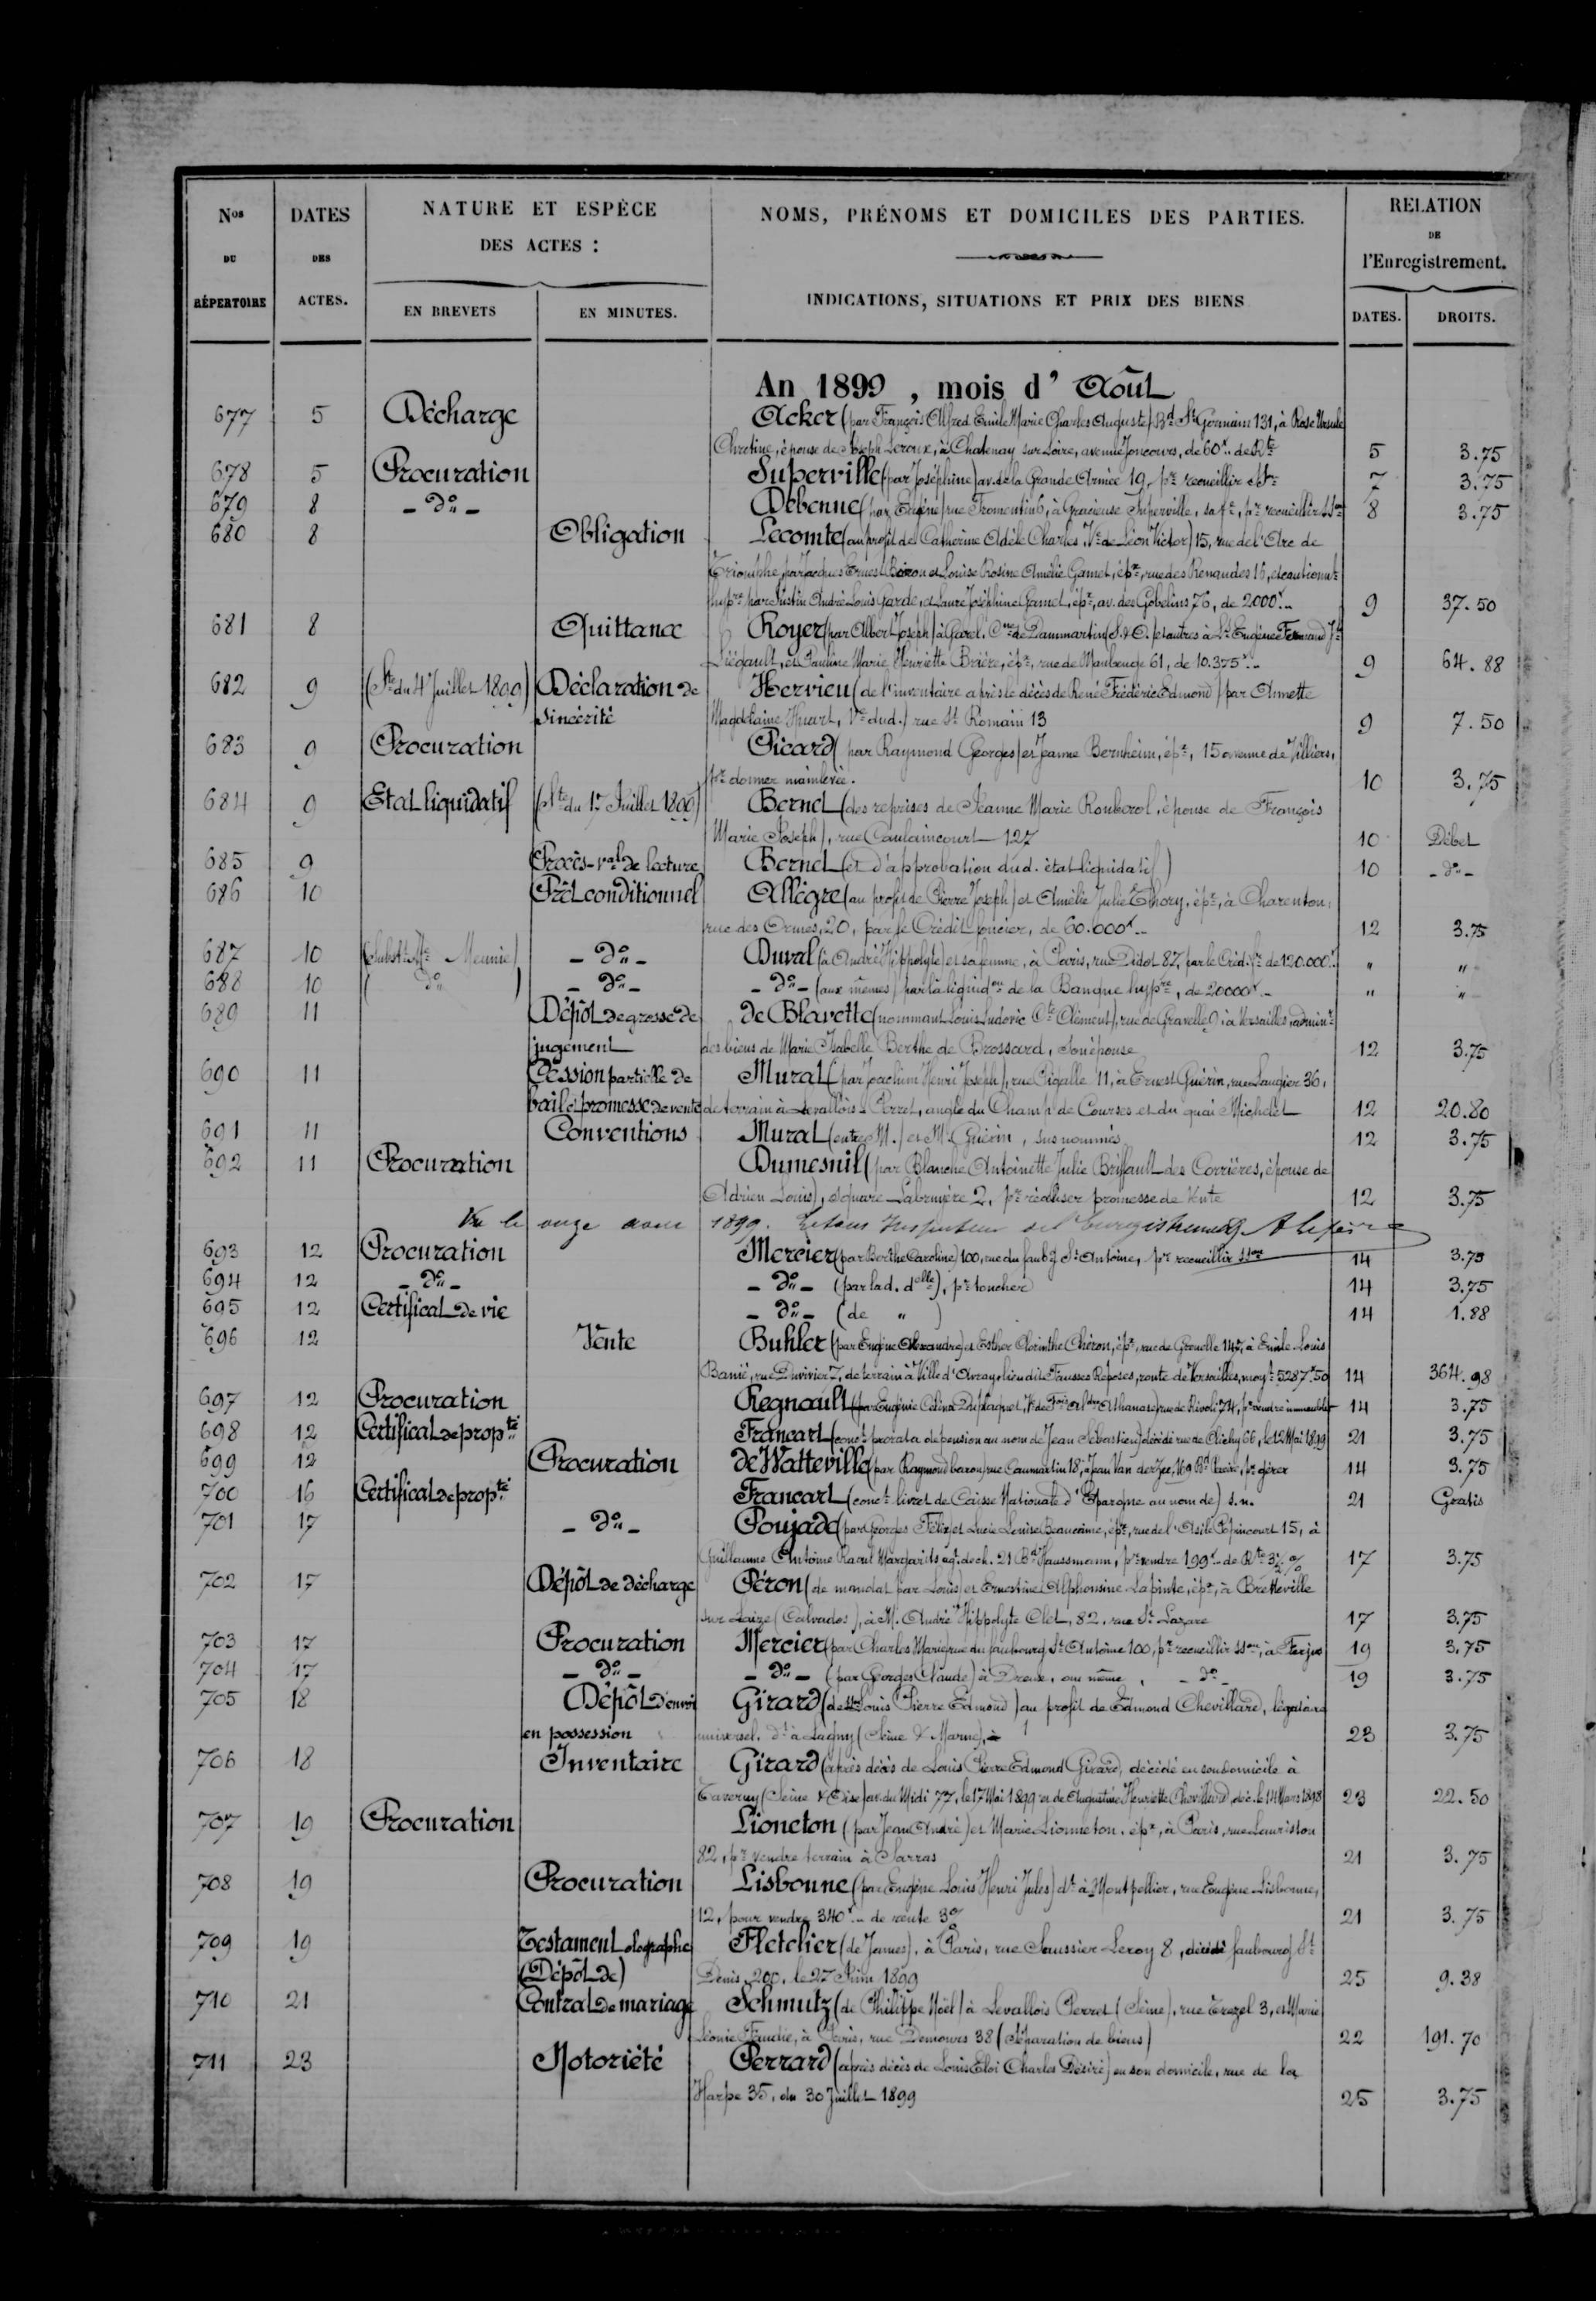 Nos DU RÉPERTOIRE
DATES DES ACTES.
NATURE ET ESPÈCE DES ACTES :
EN BREVETS
EN MINUTES.
NOMS, PRÉNOMS ET DOMICILES DES PARTIES.
INDICATIONS, SITUATIONS ET PRIX DES BIENS
RELATION DE l'Enregistrement.
DATES.
DROITS.
An 1899, mois d' Août
677 5 Décharge Acker (par François Alfred Emile Marie Charles Auguste) Bd St Germain 131, à Rose Ursule
Chretine, épouse de Joseph Leroux, à Chatenay sur Loire, avenue Joncours, de 60f.. de Rte 5 3.75
678 5 Procuration Superville (par Joséphine) av. de la Grande Armée 19, pr recueillir 7 3.75
679 8 - do - Debenne (par Eugène) rue Fromentin 6, à Gracieuse Superville, sa fe, pr recueillir sson 8 3.75
680 8 Obligation Lecomte (au profit de Catherine Adèle Charles, Ve de Léon Victor) 15, rue de l'Arc de
Triomphe, par Jacques Ernest et Louise Rosine Amélie Gamet, épx, rue des Renaudes 16, et cautionnt
hypre par Justin André Louis Garde, et Laure Joséphine Gamet, épx, av. des Gobelins 76, de 2000f.. 9 37.50
681 8 Quittance Royer (par Albert Joseph) à Garel, Cne de Dammartin (S.&O.) et autres à Ls Eugène Fernand
Liégault, et Pauline Marie Henriette Brière, épx, rue de Maubeuge 61, de 10.375f.. 9 64.88
682 9 (Ste du 4 Juillet 1899) Déclaration de Hervieu (de l'inventaire après le décès de René Frédéric Edmond) par Annette
sincérité Magdelaine Huart, Ve dud.) rue St Romain 13 9 7.50
683 9 Procuration Picard (par Raymond Georges) et Jeanne Bernheim, épx, 15 avenue de Villiers,
pr donner mainlevée. 10 3.75
684 9 Etat liquidatif (Ste du 1er Juillet 1899) Bernet (des reprises de Jeanne Marie Rouberol, épouse de François
Marie Joseph), rue Caulaincourt 127 10 Débet
685 9 Procès-val de lecture Bernet (et d'approbation dud. état liquidatif) 10 - do -
686 10 Prêt conditionnel Allègre (au profit de Pierre Joseph) et Amélie Julie Thory, épx, à Charenton,
rue des Ormes, 20, par le Crédit foncier, de 60.000f.. 12 3.75
687 10 (Subst. Me Meunié) - do - Duval (à André Hippolyte) et sa femme, à Paris, rue Didot 87, par le Créd. fer de 120.000f. " "
688 10 ( do ) - do - - do - (aux mêmes) par la liquidon de la Banque hypre, de 20000f.. " "
689 11 Dépôt de grosse de de Blavette (nommant Louis Ludovic Cte Clément), rue de Gravelle 9, à Versailles, adminr
jugement des biens de Marie Isabelle Berthe de Brossard, son épouse 12 3.75
690 11 Cession partielle de Murat (par Joachim Henri Joseph), rue Pigalle 11, à Ernest Guérin, rue Laugier 36,
bail et promesse de vente de terrain à Levallois-Perret, angle du Champ de Courses et du quai Michelet 12 20.80
691 11 Conventions Murat (entre M.) et M. Guérin, sus nommés 12 3.75
692 11 Procuration Dumesnil (par Blanche Antoinette Julie Briffault des Corrières, épouse de
Adrien Louis), square Labruyère 2, pr réaliser promesse de vente 12 3.75
Vu le onze août 1899. Inspecteur de l'Enregistrement
693 12 Procuration Mercier (par Berthe Caroline) 100, rue du faubg St Antoine, pr recueillir sson 14 3.75
694 12 - do - - do - (par lad. delle), pr toucher 14 3.75
695 12 Certificat de vie - do - (de " ) 14 1.88
696 12 Vente Buhler (par Eugène Alexandre) et Esther Clorinthe Chéron, épx, rue de Grenelle 147, à Emile Louis
Banié, rue Duvivier 7, de terrain à Ville d'Avray, lieu dit Fausses Reposes, route de Versailles, moyt 5287f.50 14 364.98
697 12 Procuration Regnault (par Eugénie Célina Duplaquet, Ve de Athanase) rue de Rivoli 74, pr vendre immeubles 14 3.75
698 12 Certificat de propté Francart (conct prorata de pension au nom de Jean Sébastien) décédé rue de Clichy 66, le 12 Mai 1899 21 3.75
699 12 Procuration de Watteville (par Raymond baron) rue Caumartin 18, à Jean Van der Zee, 169 Bd Pereire, pr gérer 14 3.75
700 16 Certificat de propté Francart (conct livret de Caisse Nationale d'Epargne au nom de) s.n. 21 Gratis
701 17 - do - Poujade (par Georges Félix) et Lucie Louise Beaucaine, épx, rue de l'Asile Popincourt 15, à
Guillaume Antoine Raoul Margarits agt. de ch. 21 Bd Haussmann, pr vendre 199f.. de Rte 3½ % 17 3.75
702 17 Dépôt de décharge Péron (de mandat par Louis) et Ernestine Alphonsine Lapinte, épx, à Bretteville
sur Laize (Calvados), à M. André Hippolyte Clet, 82, rue St Lazare 17 3.75
703 17 Procuration Mercier (par Charles Marie) rue du faubourg St Antoine 100, pr recueillir sson, à 19 3.75
704 17 - do - - do - (par Georges Claude) à Dreux, au même, - do - 19 3.75
705 18 Dépôt d'envoi Girard (de Louis Pierre Edmond) au profit de Edmond Chevillard, légataire
en possession universel, dt à Lagny (Seine & Marne), 23 3.75
706 18 Inventaire Girard (après décès de Louis Pierre Edmond Girard, décédé en son domicile à
Taverny (Seine & Oise) av. du Midi 77, le 17 Mai 1899 et de Augustine Henriette Chevillard, déc. le 14 Mars 1898 23 22.50
707 19 Procuration Lioneton (par Jean André) et Marie Lionneton, épx, à Paris, rue Lauriston
82, pr vendre terrain à Sarras 21 3.75
708 19 Procuration Lisbonne (par Eugène Louis Henri Jules) dt à Montpellier, rue Eugène Lisbonne,
12, pour vendre 340f.. de rente 3% 21 3.75
709 19 Testament olographe Fletcher (de James), à Paris, rue Saussier Leroy 8, décédé faubourg St
(Dépôt de) Denis 200, le 27 Juin 1899 25 9.38
710 21 Contrat de mariage Schmutz (de Philippe Noël) à Levallois Perret (Seine), rue Trezel 3, et Marie
Léonie, à Paris, rue Demours 38 (Séparation de biens) 22 191.70
711 23 Notoriété Perrard (après décès de Louis Eloi Charles Désiré) en son domicile, rue de la
Harpe 35, du 30 Juillet 1899 25 3.75